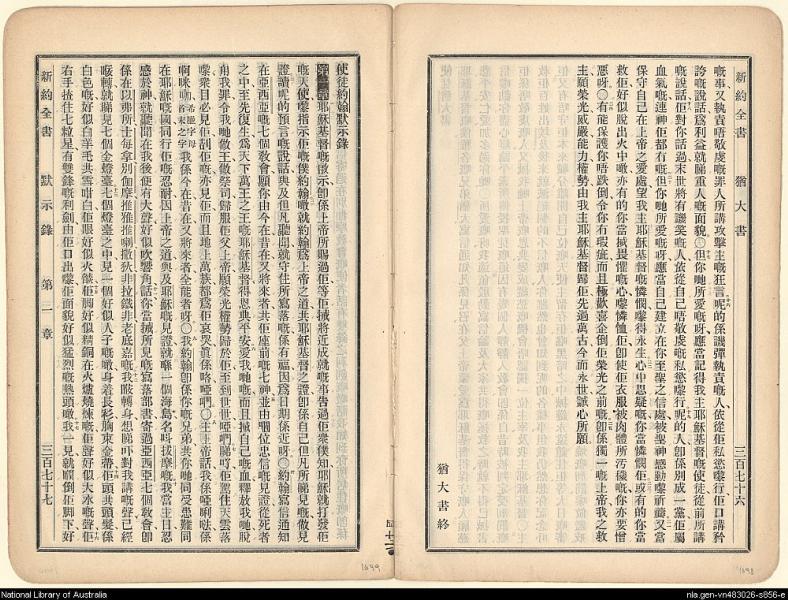 新約全書 猶大書 三百七十六
嘅事又執責唔敬虔嘅罪人所講攻擊主嘅狂言呢的係譏彈執責嘅人依從佢私慾嚟行佢口講矜
誇嘅說話為利益就睇重人嘅面貌〇但你哋所愛嘅呀應當記得我主耶穌基督嘅使徒從前所講
嘅說話佢對你話過末世將有譏笑嘅人依從自己唔敬虔嘅私慾嚟行呢的人卽係別成一黨佢屬
血氣嘅連神佢都冇嘅但你哋所愛嘅呀應當自己建立在你至聖之信處被聖神感動嚟祈禱又當
保守自己在上帝之愛處望我主耶穌基督嘅憐憫嚟得永生心中思疑嘅你當憐憫佢或有的你當
救佢好似脫出火中噉亦有的你當揻畏懼嘅心嚟憐恤佢卽使佢衣服被肉體所污穢嘅你亦要憎
惡呀〇有能保護你唔跌倒令你冇瑕疵而且極歡喜企倒佢榮光之前嘅卽係獨一嘅上帝我之救
主願榮光威嚴能力權勢由我主耶穌基督歸佢先過萬古今而永世誠心所願
猶大書終
使徒約翰默示錄
耶穌基督嘅啟示卽係上帝所賜過佢等佢揻將近成就嘅事吿過佢衆僕知耶穌就打發佢
嘅天使嚟指示佢嘅僕約翰噉就約翰為上帝之道共耶穌基督之證卽係自己但凡所睇見嘅做見
證讀呢的預言嘅說話與及但凡聽聞就守住所寫落嘅係有福因為日期係近呀〇約翰寫信通知
在亞西亞嘅七個敎會願你由今在昔在又將來者共佢座前嘅七神並由嗰位忠信嘅見證從死者
之中至先復生為天下萬王之王嘅耶穌基督得恩典平安愛我哋嘅而且揻自己嘅血釋放我哋脫
用我罪令我哋做王做祭司歸服佢父上帝願榮光權勢歸於佢至到世世啞們睇吖佢駕住天雲落
嚟衆目必見佢刮佢嘅亦見佢而且地上萬族都為佢哀哭眞係咯啞們〇主上帝話我係
我係今在昔在又將來者全能者呀〇我約翰卽係你嘅兄弟共你哋同受患難同
在耶穌嘅國同行佢嘅忍耐因上帝之道與及耶穌嘅見證就喺一個海島名叫拔摩嘅我當主日忍
感於神就聽聞在我後便有大聲好似吹響角話你當揻所見嘅寫落部書寄過亞西亞七個敎會卽
係在以弗所士每拿別伽摩推雅推喇撒狄非拉鐵非老底嘉嘅我𠾴轉身想睇吓對我講嘅聲已經
𠾴轉就睇見七個金燈臺七個燈臺之中見一個好似人子嘅噉身着長衫胸束金帶佢頭共頭髮係
白色嘅好似白羊毛共雪咁白佢眼好似火燄佢脚好似精銅在火爐燒煉嘅佢聲好似大水嘅聲佢
右手揸住七粒星有雙鋒嘅利劍由佢口出嚟佢面貌好似猛烈嘅熱頭噉我一見就𨅝倒佢脚下好
新約全書 默示錄 第一章 三百七十七
National Library of Australia
nla.gen-vn483026-s856-e